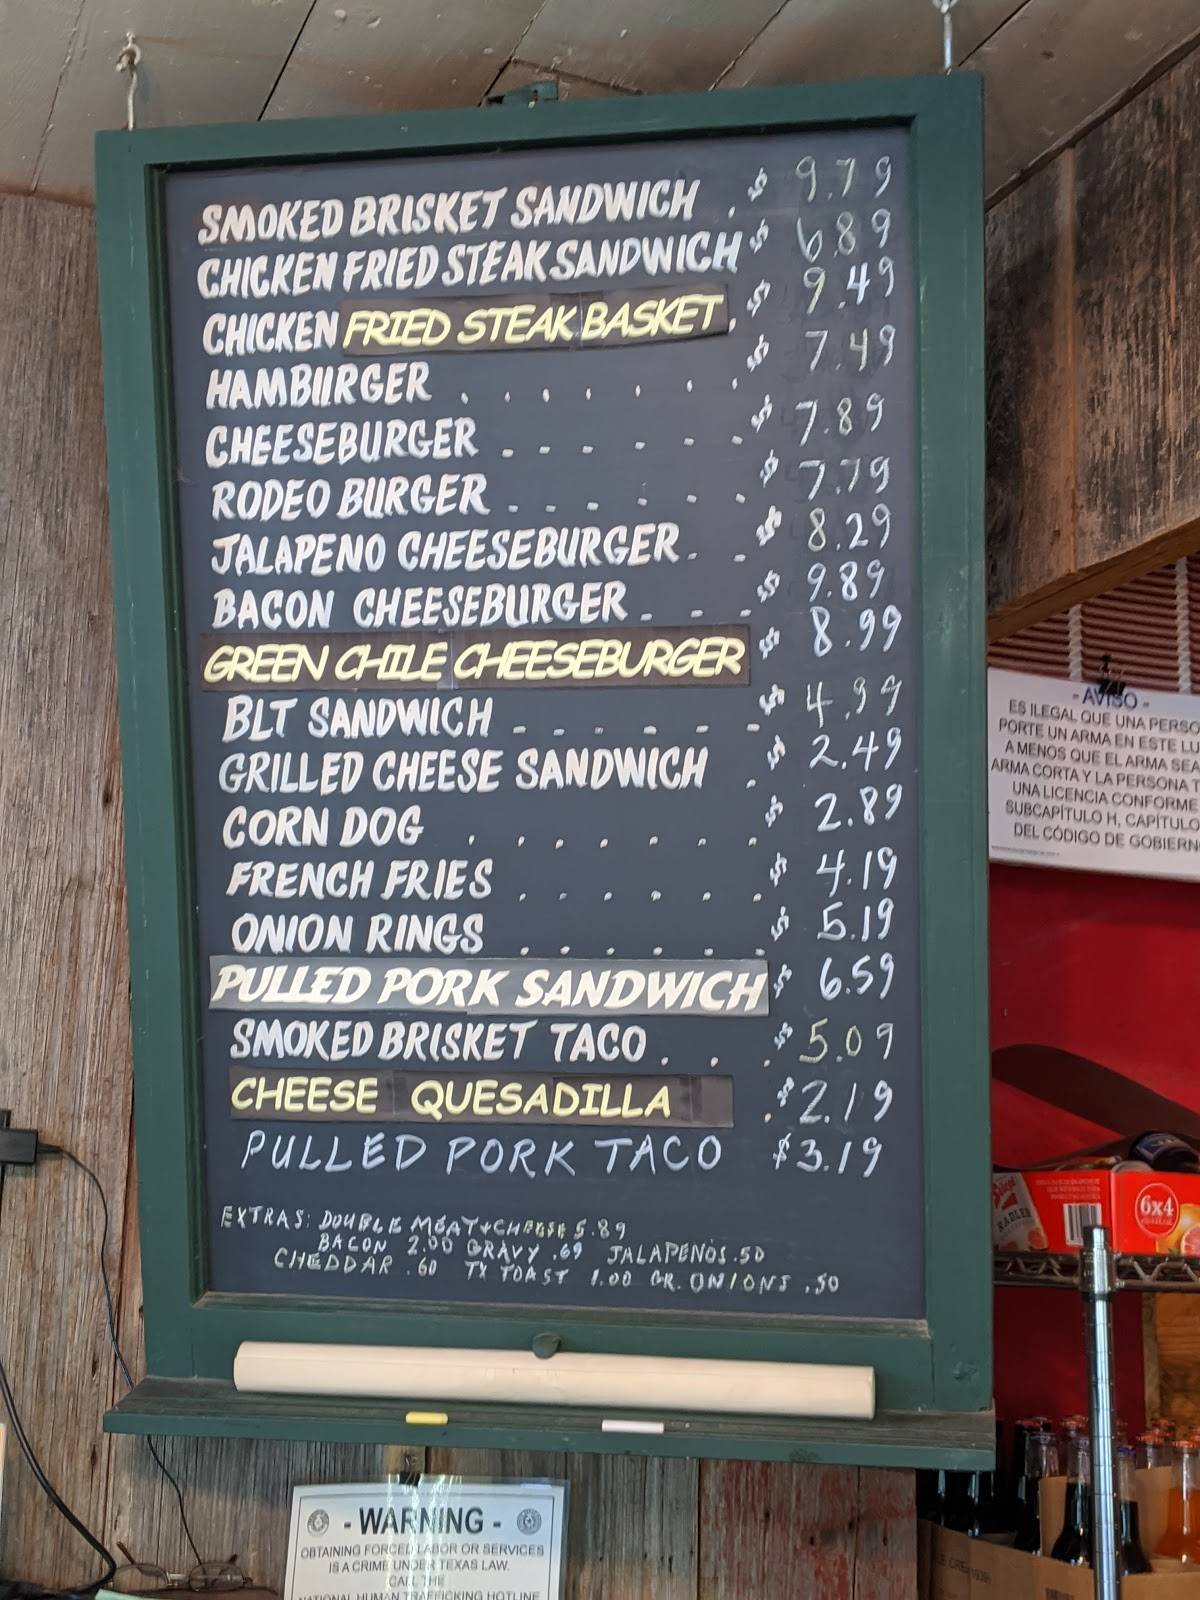 SMOKED BRISKET SANDWICH . $ 9.79
CHICKEN FRIED STEAK SANDWICH $ 6.89
CHICKEN FRIED STEAK BASKET . $ 9.49
HAMBURGER . . . . . . . $ 7.49
CHEESEBURGER . . . . . . $ 7.89
RODEO BURGER . . . . . . $ 7.79
JALAPENO CHEESEBURGER . . $ 8.29
BACON CHEESEBURGER . . . $ 9.89
GREEN CHILE CHEESEBURGER $ 8.99
BLT SANDWICH . . . . . . $ 4.99
GRILLED CHEESE SANDWICH . $ 2.49
CORN DOG . . . . . . . $ 2.89
FRENCH FRIES . . . . . . $ 4.19
ONION RINGS . . . . . . $ 5.19
PULLED PORK SANDWICH $ 6.59
SMOKED BRISKET TACO . . . $ 5.09
CHEESE QUESADILLA . $ 2.19
PULLED PORK TACO $3.19
EXTRAS: DOUBLE MEAT+CHEESE 5.89
BACON 2.00 GRAVY .69 JALAPENOS .50
CHEDDAR .60 TX TOAST 1.00 GR. ONIONS .50
- AVISO -
ES ILEGAL QUE UNA
PORTE UN ARMA EN ESTE
A MENOS QUE EL ARMA SEA
ARMA CORTA Y LA PERSONA
UNA LICENCIA CONFORME
SUBCAPÍTULO H, CAPÍTULO
DEL CÓDIGO DE
RADLER
6x4
- WARNING -
OBTAINING FORCED LABOR OR SERVICES
IS A CRIME UNDER TEXAS LAW.
CALL THE
NATIONAL HUMAN TRAFFICKING HOTLINE